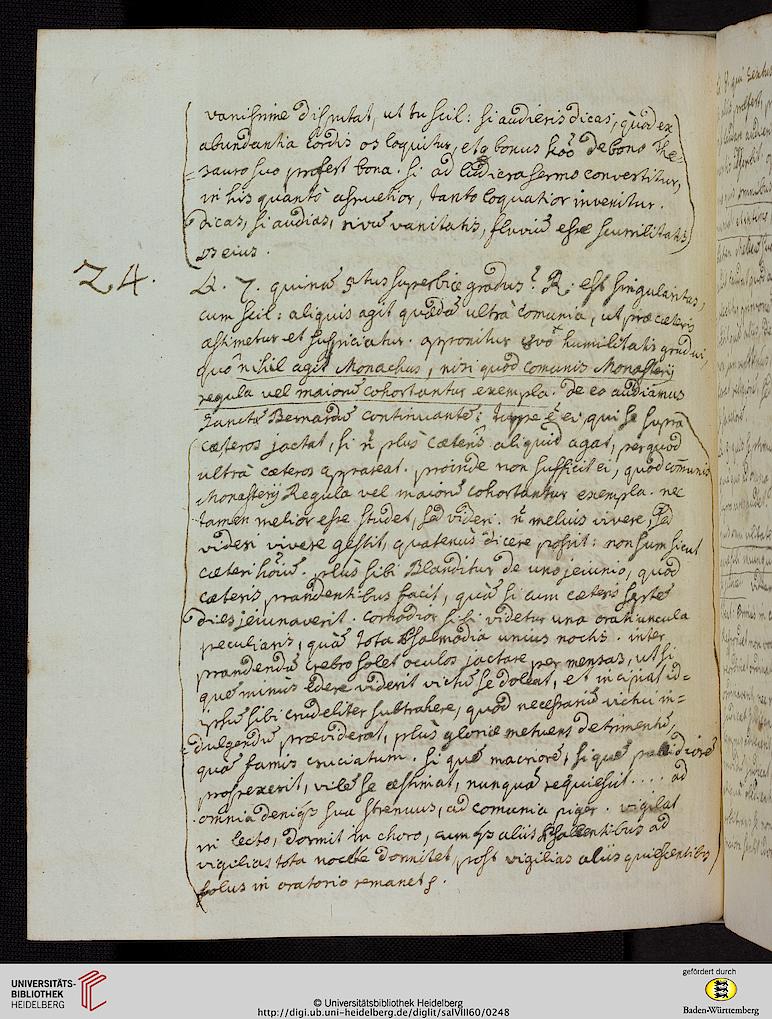 vanissime disputat, ut tu scil: si audieris dicas, quod ex
abundantia cordis os loquitur, et q bonus hoō de bono The=
=sauro suo profert bona. si ad ludicra sermo convertitur,
in his quantò assuetior, tanto loquatior invenitur.
dicas, si audias, rivū vanitatis, fluviū esse scurrilitatis
os eius.
24. Q. 7. quinā stus superbiæ gradus? R. est singularitas,
cum scil: aliquis agit quædā ultrà comunia, ut præ cæteris
æstimetur et suspiciatur. opponitur humilitatis gradui,
quō nihil agit Monachus, nisi quod comunis Monasterij
regula vel maiorū cohortantur exempla. de eo audiamus
Sanctū Bernardū continuantē: turpe ē ei qui se supra
cæteros jactat, si ñ plus cæteris aliquid agat, per quod
ultrà cæteros appareat. proinde non sufficit ei, quod comunis
Monasterij Regula vel maiorū cohortantur exempla. nec
tamen melior esse studet, sed videri. ñ melius vivere, sed
videri vivere gestit, quatenus dicere possit: non sum sicut
cæteri hoīū. plus sibi Blanditur de uno jeiunio, quod
cæteris prandentibus facit, quā si cum cæteris septē
dies jeiunaverit. comodior sibi videtur una oratiuncula
peculiaris, quā tota Psalmodia unius noctis. inter
prandendū crebro solet oculos jactare per mensas, ut si
quē minus edere viderit victū se doleat, et incipiat id=
ipsū sibi crudeliter subtrahere, quod necessariū victui in=
=dulgendū præviderat, plus gloriæ metuens detrimentū,
quā famis cruciatum. si quē macriorē, si quē pallidiorē
prospexerit, vilē se æstimat, nunquā requiescit.... ad
omnia deniqs sua strenuus, ad comunia piger. vigilat
in lecto, dormit in choro, cumqs aliis Psallentibus ad
vigilias tota nocte dormitet, post vigilias aliis quiescentibus
solus in oratorio remanet.
UNIVERSITÄTS-
BIBLIOTHEK
HEIDELBERG
© Universitätsbibliothek Heidelberg
http://digi.ub.uni-heidelberg.de/diglit/salVIII60/0248
gefördert durch
Baden-Württemberg